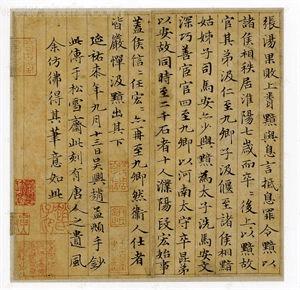 張湯果敗上聞黯與息言抵息罪令黯以
諸侯相秩居淮陽七歲而卒後上以黯故
官其弟汲仁至九卿子汲偃至諸侯相黯
姑姊子司馬安亦少與黯為太子洗馬安文
深巧善宦官四至九卿以河南太守卒昆弟
以安故同時至二千石者十人濮陽段宏始事
蓋侯信信任宏宏亦再至九卿然衛人仕者
皆嚴憚汲黯出其下
延祐泰年九月十三日吳興趙孟頫手鈔
此傳于松雪齋此刻有唐人之遺風
余仿佛得其筆意如此